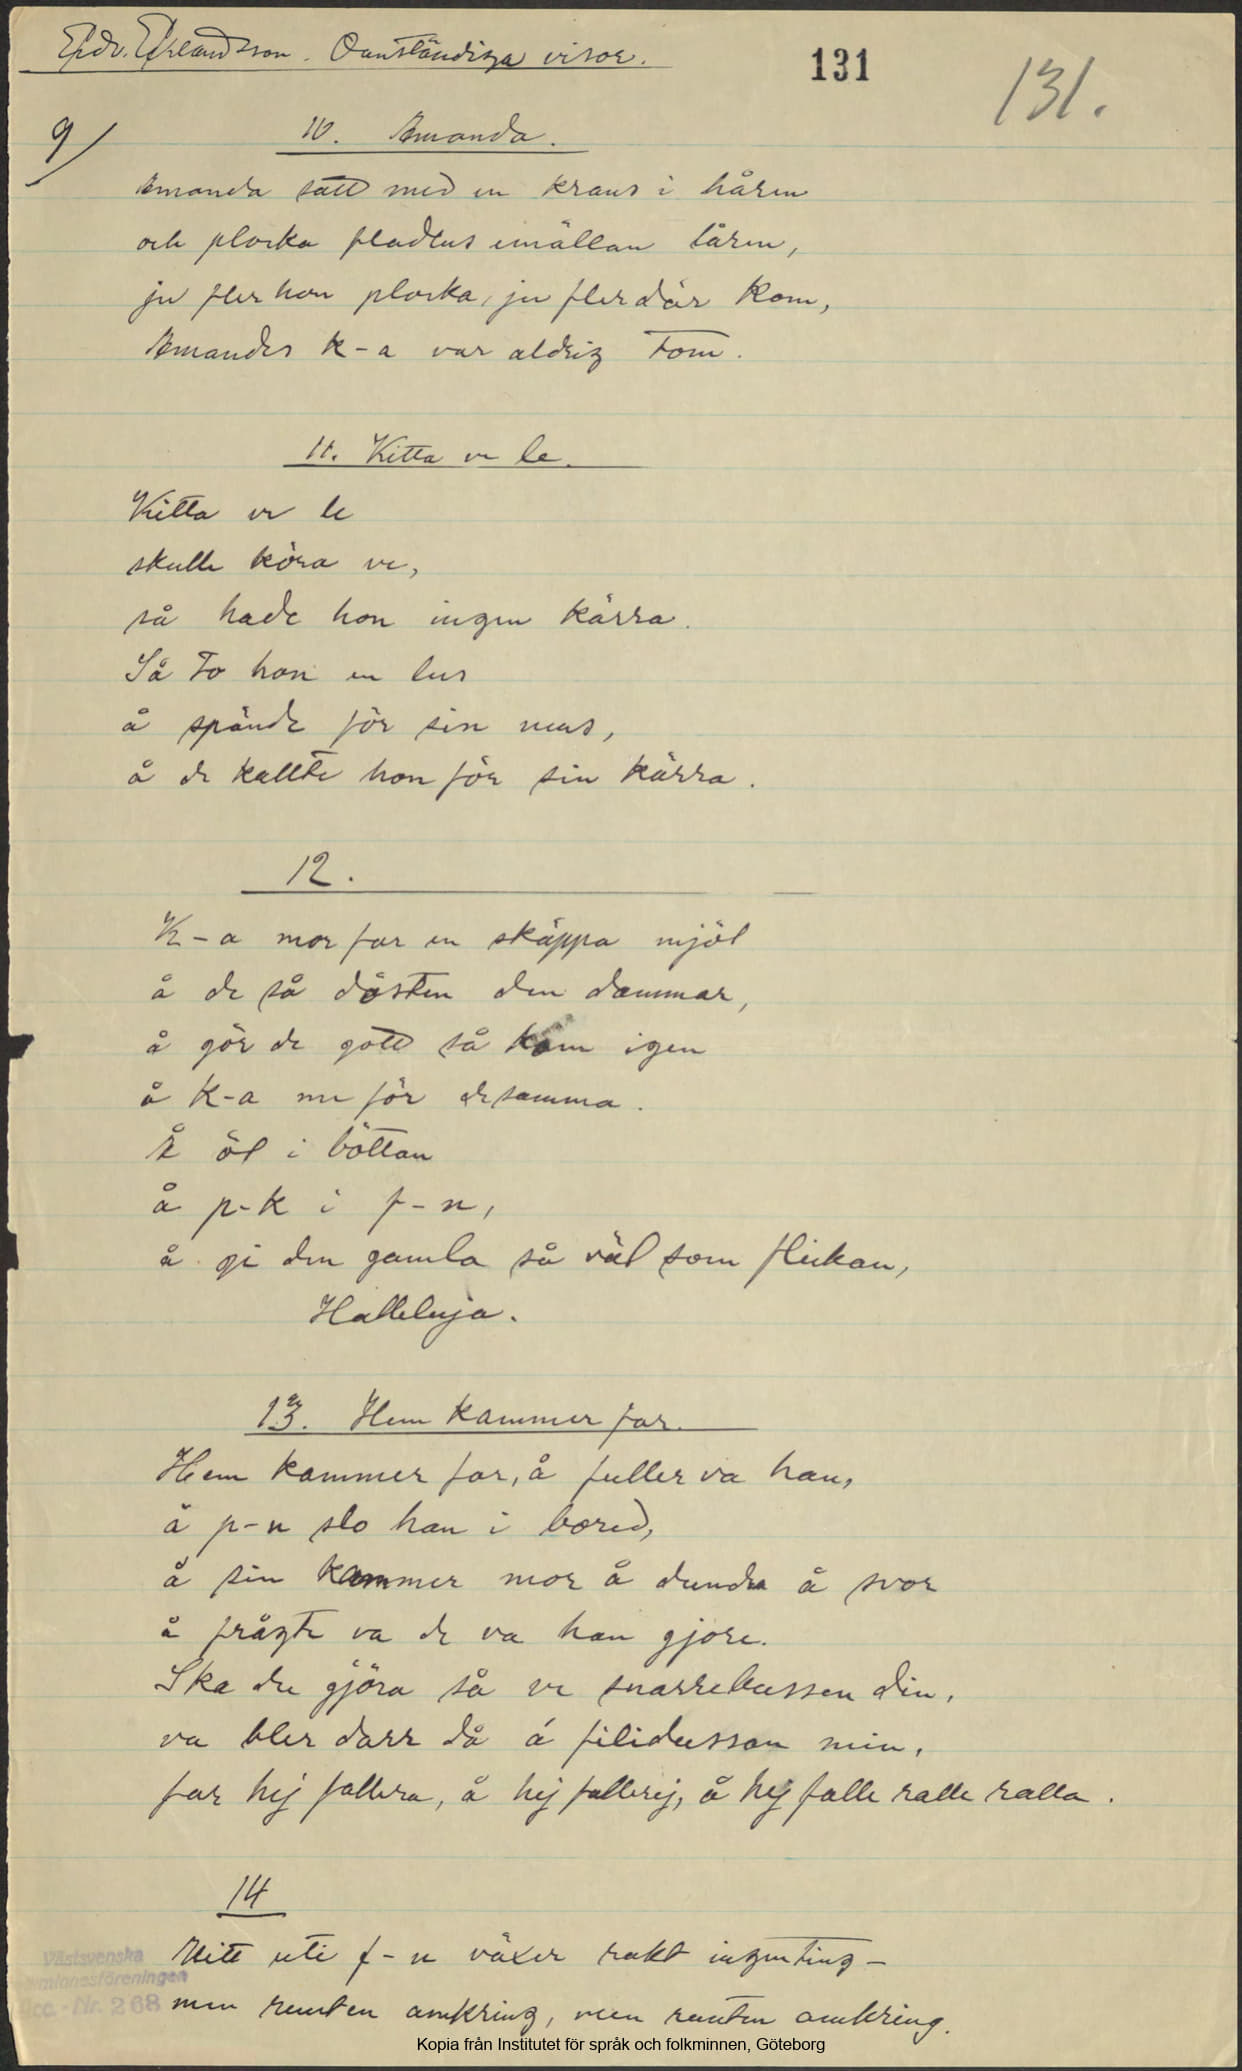 Edv. Erlandsson. Oanständiga visor.
131
131.
9/
10. Amanda.
Amanda satt med en krans i håren
och plocka fladlus emällan låren,
ju fler hon plocka, ju fler där kom,
Amandas k-a var aldrig tom.
11. Kitta ve le.
Kitta ve le
skulle köra ve,
så hade hon ingen kärra.
Så to hon en lus
å spände för sin mus,
å de kallte hon för sin kärra.
12.
K-a mor far en skäppa mjöl
å de så dåsten den dammar,
å gör de gott så kom igen
å k-a me för desamma.
Å öl i böttan
å p-k i f-n,
å gi den gamla så väl som flickan,
Halleluja.
13. Hem kammer far.
Hem kammer far, å fuller va han,
å p-n slo han i bored,
å sin kammer mor å dundra å svor
å frågte va de va han gjore.
Ska du gjöra så ve snarrebussen din,
va bler darr då å filidussan min,
far hej fallera, å hej fallerej, å hej falle ralle ralla.
14
Mitt uti f-n växer rakt ingenting –
men runten omkring, men runten omkring.
Västsvenska
Acc.-Nr. 268
Kopia från Institutet för språk och folkminnen, Göteborg